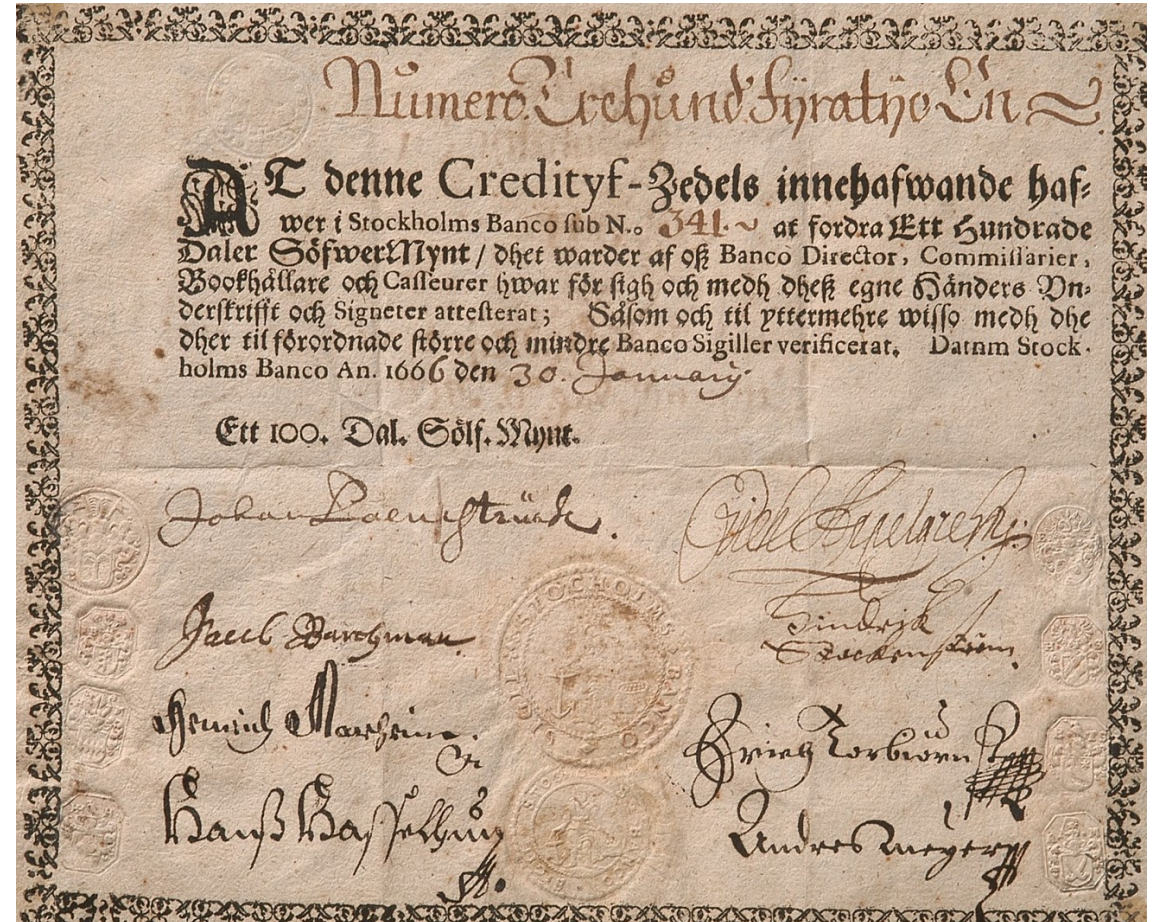 Numero. Trehund. fÿratÿo En
AT denne Credityf-Zedels innehafwande haf-
wer i Stockholms Banco sub N.o 341. at fordra Ett Hundrade
Daler SöfwerMynt / dhet warder af oß Banco Director, Commissarier,
Bookhållare och Casseurer hwar för sigh och medh dheß egne Händers Vn-
derskrifft och Signeter attesterat; Såsom och til yttermehre wisso medh dhe
dher til förordnade större och mindre Banco Sigiller verificerat. Datnm Stock-
holms Banco An. 1666 den 30. January.
Ett 100. Dal. Sölf. Mynt.
Johan
Jacob Barchman
Hindrich
Stockenström
STOCHOLMS BANCO
Henrich
Erich Torbiörn
Hanß
Andres Meyer